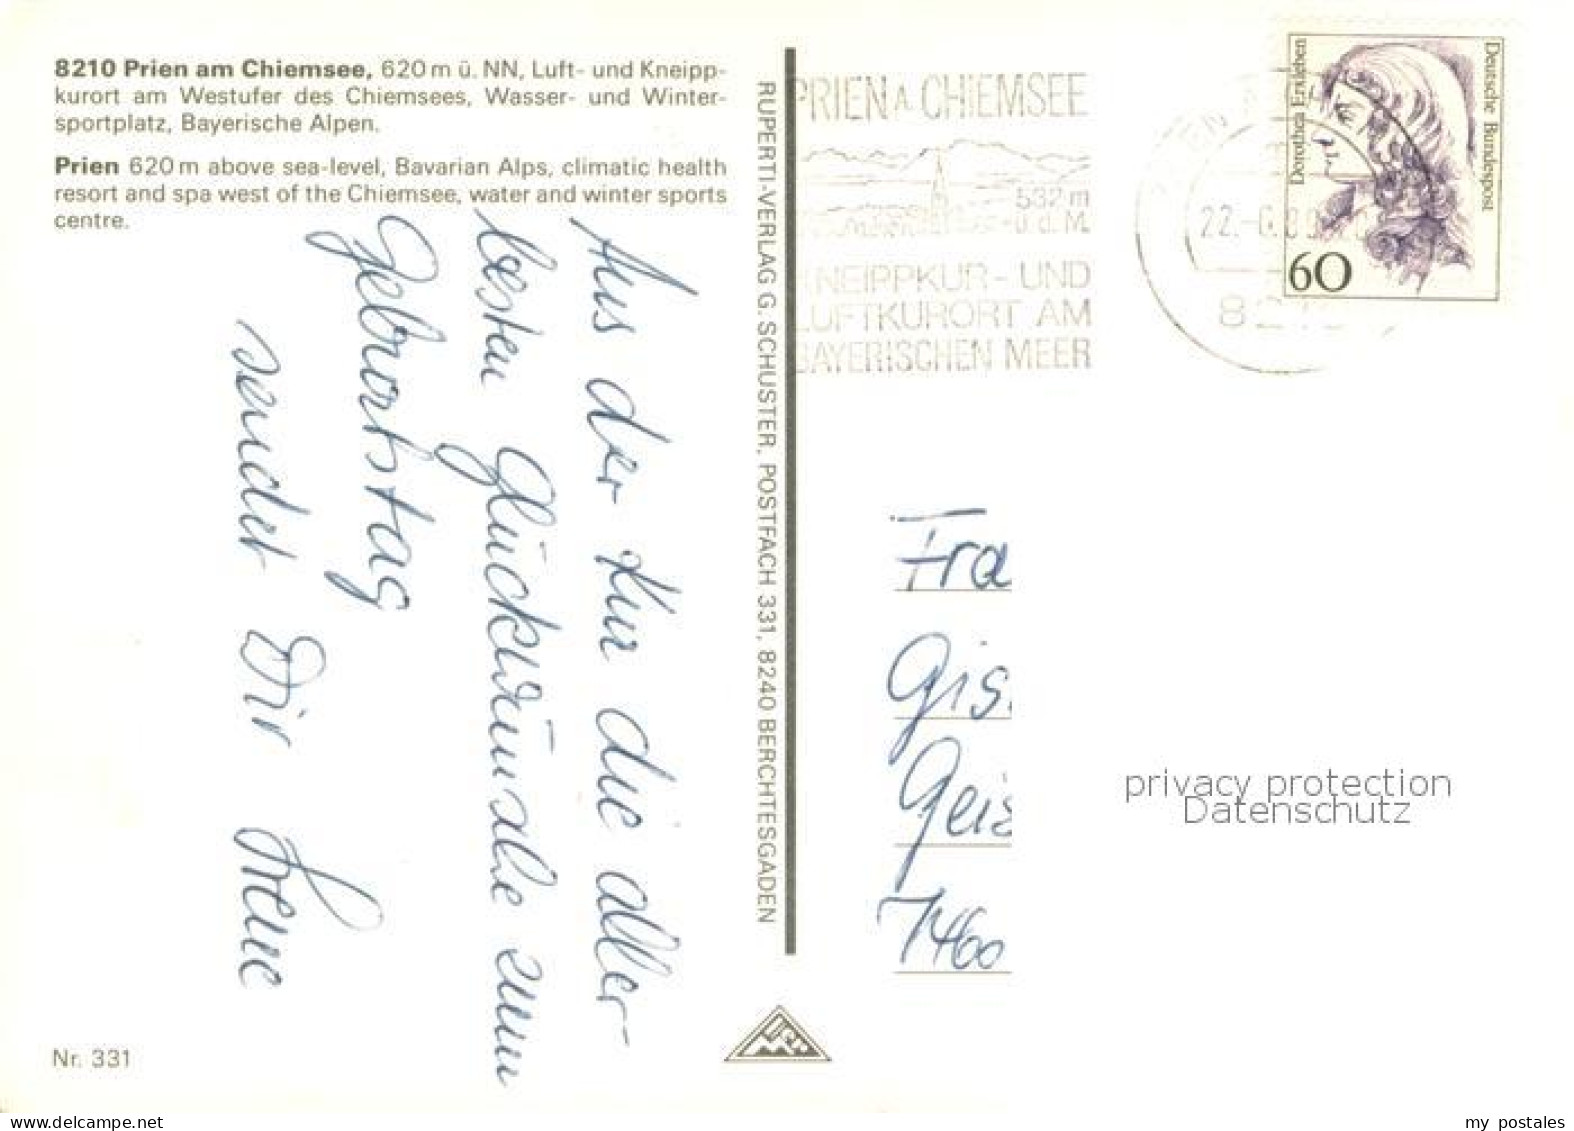 8210 Prien am Chiemsee, 620 m ü. NN, Luft- und Kneipp-
kurort am Westufer des Chiemsees, Wasser- und Winter-
sportplatz, Bayerische Alpen.
Prien 620 m above sea-level, Bavarian Alps, climatic health
resort and spa west of the Chiemsee, water and winter sports
centre.
Aus der Kur die aller-
besten Glückwünsche zum
Geburtstag
sendet Dir Irene
Nr. 331
RUPERTI-VERLAG G. SCHUSTER, POSTFACH 331, 8240 BERCHTESGADEN
PRIEN A CHIEMSEE
532 m
ü. d. M.
KNEIPPKUR- UND
LUFTKURORT AM
BAYERISCHEN MEER
22.-6.89
82
Dorothea Erxleben
Deutsche Bundespost
60
Fra
Gis
Geis
7460
privacy protection
Datenschutz
delcampe.net
my postales